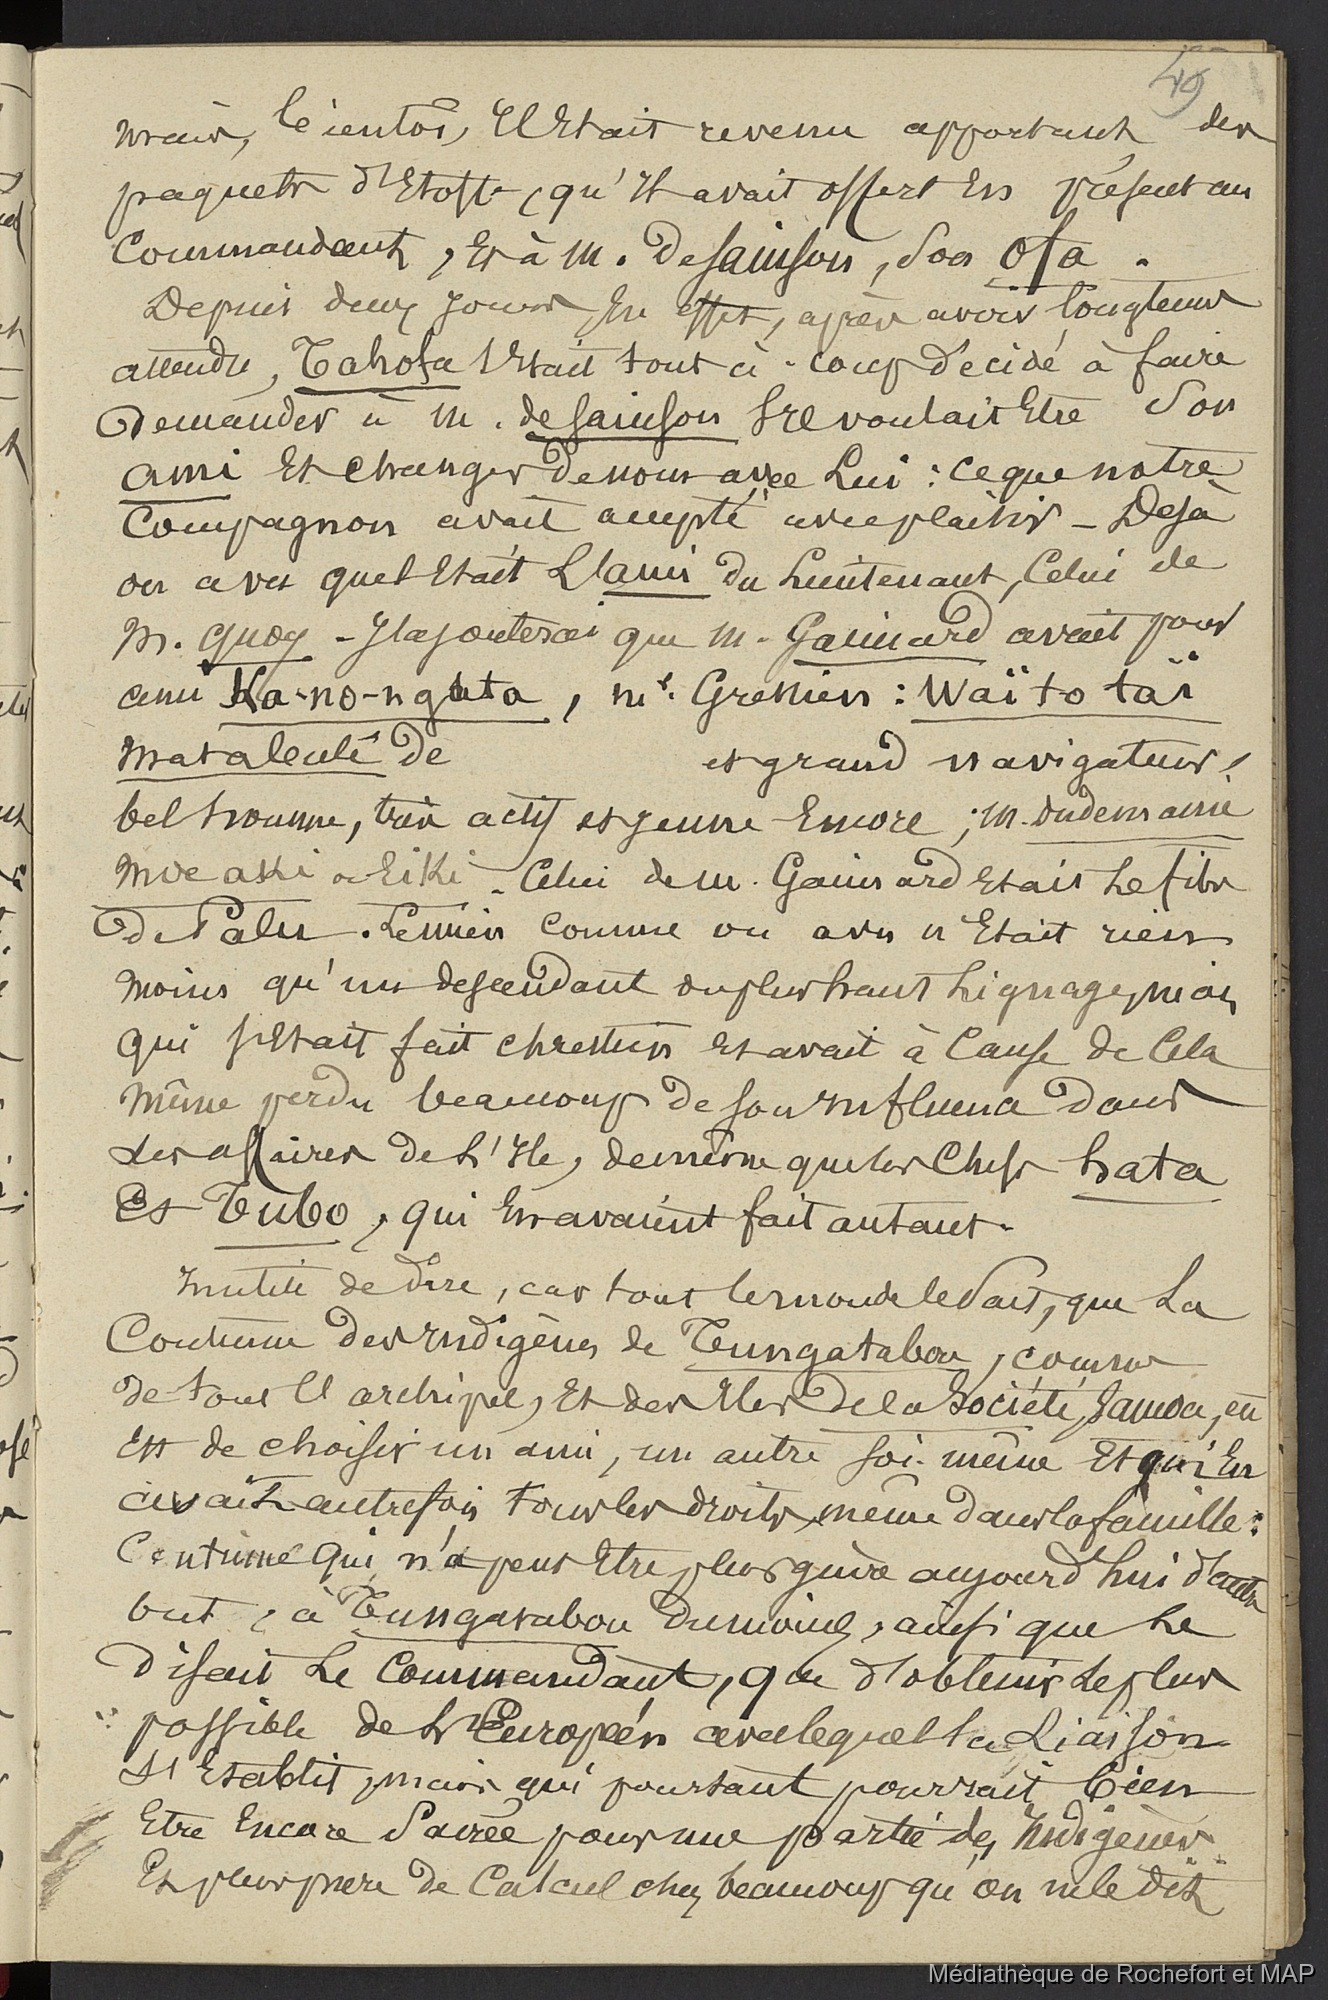 49
mais, bientôt, Il Etait revenu apportant des
paquets d'Etoffe, qu'Il avait offert En présent au
Commandant, Et à M. De Sainson, Son Ofa.
Depuis deux Jours, En effet, après avoir longtems
attendu, Tahofa s'Etait tout à-coup décidé à faire
Demander à M. de Sainson s'Il voulait Etre Son
ami Et changer De nom avec Lui : ce que notre
Compagnon avait accepté avec plaisir - Déjà
on a vu quel Etait L'ami du Lieutenant, Celui de
M. Quoy - J'ajouterai que M. Gaimard avait pour
ami Ka-no-nguta, Mr. Gressien : Waï to taï
Mataboulé de et grand navigateur,
bel homme, très actif et jeune Encore ; M. Dudemaine
Moe aki o Eiki - Celui de M. Gaimard Etait Le fils
de Palu. Le mien comme on a vu n'Etait rien
moins qu'un descendant du plus haut Lignage, mais
qui s'Etait fait chrétien Et avait à Cause de Cela
même perdu beaucoup de son Influence dans
Les affaires de L'Ile, de même que les Chefs hata
Et Tubo, qui En avaient fait autant.
Inutile de dire, car tout le monde le Sait, que La
Coutume des Indigènes de Tungatabou, comme
de tout l'archipel, Et des Iles de la Société, Samoa, en
Est de choisir un ami, un autre soi-même Et qui En
avait autrefois tous les droits, même dans la famille :
Coutume qui n'a peut Etre plus guère aujourd'hui d'autre
but, à Tungatabou du moins, ainsi que Le
disait Le Commandant, que d'obtenir Le plus
possible de L'Européen avec lequel la Liaison
S'Etablit, mais qui pourtant pourrait bien
Etre Encore Sacrée pour une partie des Indigènes
Et plus pure de Calcul chez beaucoup qu'on ne le dit
Médiathèque de Rochefort et MAP